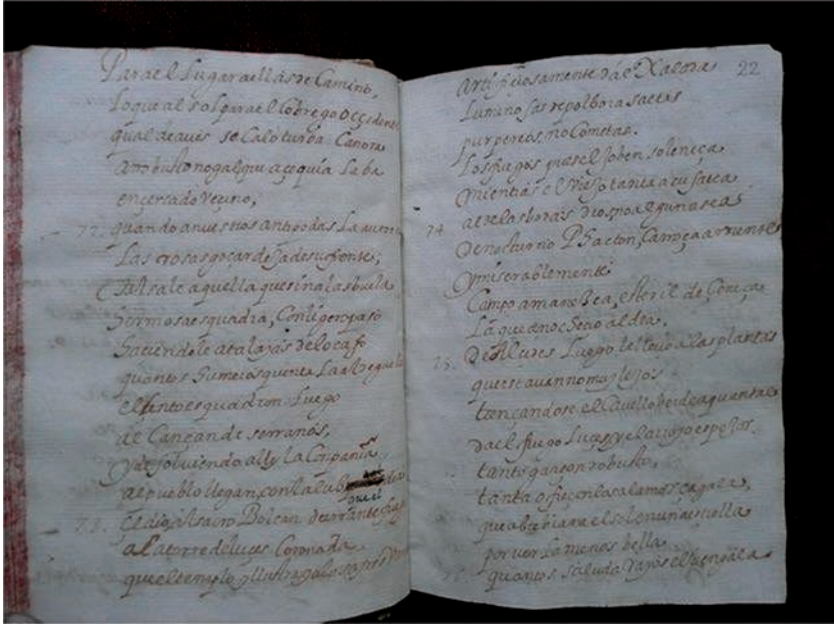 Para el lugar a ellas de Camino,
lo que al sol para el lobrego occidente
qual de aves se calo turba Canora
a robusto nogal que açequia laba
en çercado veçino,
72. quando a nuestros antipodas la aurora
Las rosas goçar deja de su frente;
tal sale aquella que sin alas buela
hermosa esquadra, con ligero paso
haciendole atalayas del ocaso
quantos humeros quenta la aldeguela
el lento esquadron luego
alCançan de serranos,
y disolviendo alli la Conpañia
al pueblo llegan, con la luz que el dia
73. Cedio, al sacro Bolcan de errante fuego
a la torre de luçes Coronada
que el templo yllustra, y a los ayres vanos
22
artifiçiosamente da eXalada
luminosas de polbora saetas
purpureos, no Cometas.
Los fuegos pues el joben soleniça
mientras el viejo tanta acusa tea
al de las bodas dios, no alguna sea
74 De nocturno Phaeton, Carroça ardiente
y miserablemente
Campo amanezca, esteril de Ceniça
la que anochecio aldea.
75. De Alcides luego le lleuo a las plantas
que estauan no muy lejos
trençandose el Cauello berde a quantas
da el fuego luçes, y el arroyo espejos.
tanto garson robusto,
tanta ofreçen los alamos çagala,
que abrebiara el sol en una estrella
por ver la menos bella
quantos saluda rayos el bengala